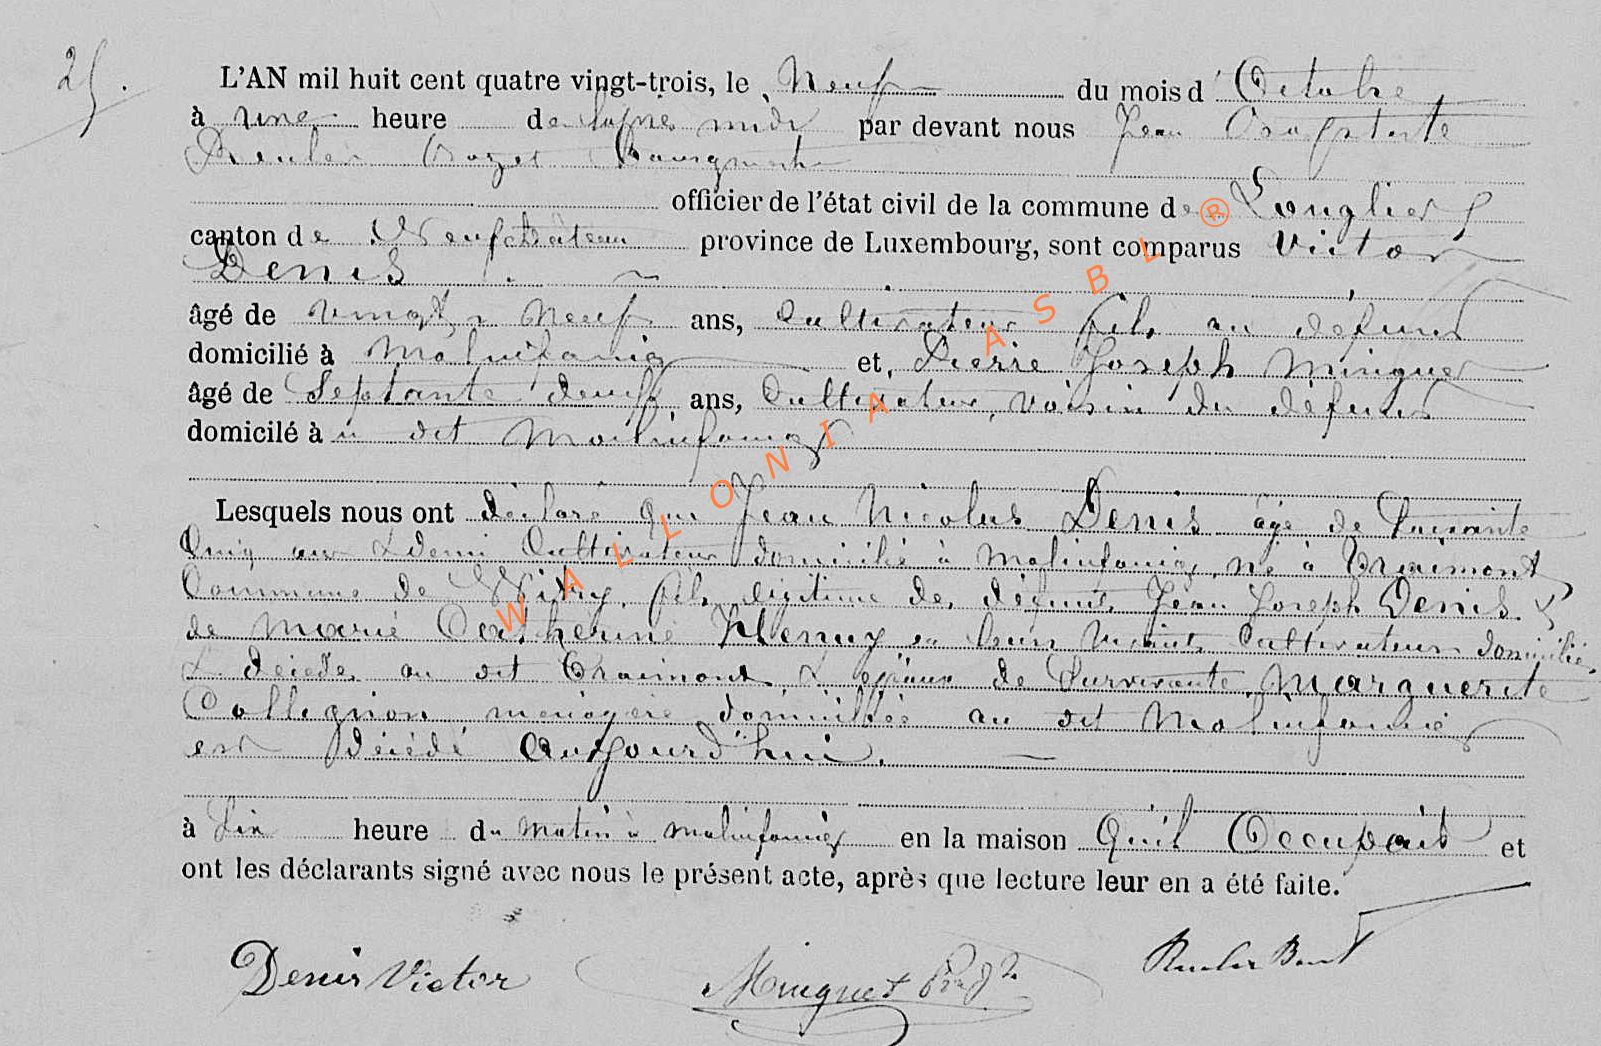 25.
L'AN mil huit cent quatre vingt-trois, le Neuf du mois d'Octobre
à une heure de l'apres midi par devant nous Jean Baptiste
Reuler Bourgmestre
officier de l'état civil de la commune de Longlier
canton de Neufchâteau province de Luxembourg, sont comparus Victor
Denis
âgé de vingt neuf ans, Cultivateur fils au défunt
domicilié à Molinfaing et, Pierre Joseph Minguet
âgé de Septante deux ans, Cultivateur, voisin du défunt
domicilé à u dit Molinfaing
Lesquels nous ont déclaré que Jean Nicolas Denis âgé de
Cinq ans & demi Cultivateur domicilié à Molinfaing, né à Traimont
Commune de Witry, fils légitime des défunts Jean Joseph Denis &
de Marie Catherine Henry en leur vivant Cultivateurs domiciliés
& décédés au dit Traimont, & époux de Survivante, Marguerite
Collignon ménagère domiciliée au dit Molinfaing
est décédé Aujourd'hui.
à Six heure du matin à Molinfaing en la maison Qu'il Occupait et
ont les déclarants signé avec nous le présent acte, après que lecture leur en a été faite.
Denis Victor Minguet
WALLONIA ASBL ®